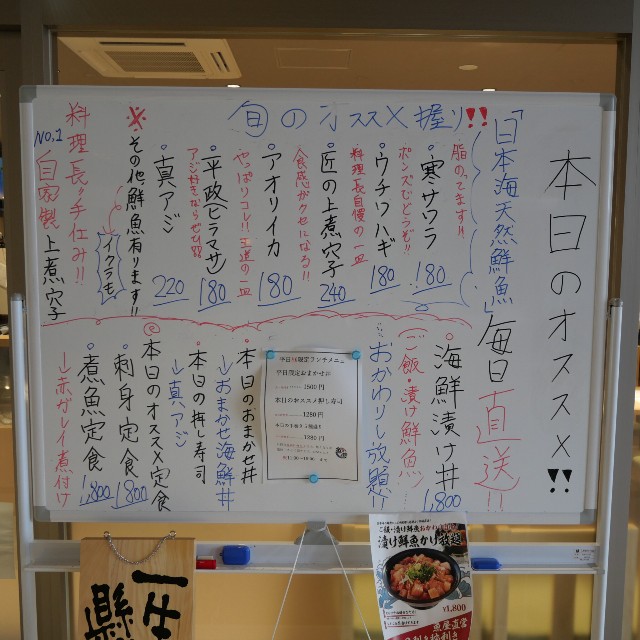 本日のオススメ!!
「日本海天然鮮魚」毎日直送!!
旬のオススメ握り!!
脂のってます!!
・寒サワラ 180
ポン酢でどうぞ!!
・ウチワハギ 180
料理長自慢の一皿
・匠の上煮穴子 240
食感がクセになる!!
・アオリイカ 180
やっぱりコレ!!王道の一皿
・平政(ヒラマサ) 180
アジ好きならぜひ!!
・真アジ 220
※その他鮮魚有ります!!
イクラも
料理長ノ手仕込み!!
NO.1 自家製上煮穴子
・海鮮漬け丼 1,800
(ご飯・漬け鮮魚)
おかわりし放題!
平日限定ランチメニュー
平日限定おまかせ丼
1500円
本日のおススメ押し寿司
1280円
1380円
・本日のおまかせ丼
→おまかせ海鮮丼
・本日の押し寿司
→真アジ
・本日のオススメ定食
・刺身定食 1,800
・煮魚定食 1,800
→赤ガレイ煮付け
ご飯・漬け鮮魚おかわり
漬け鮮魚かけ放題
¥1,800
魚屋直営
一生懸